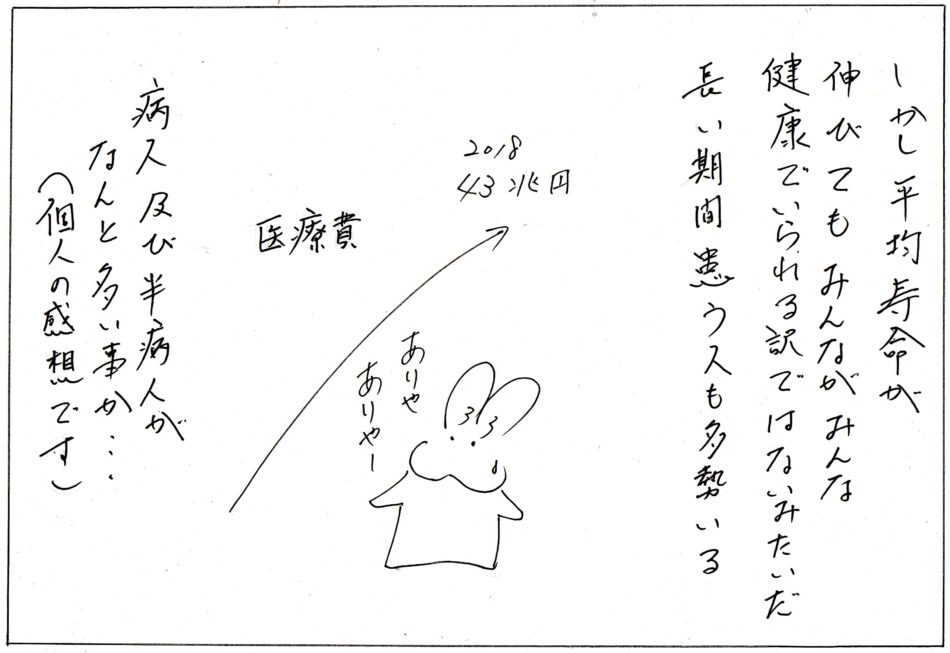 しかし平均寿命が
伸びてもみんながみんな
健康でいられる訳ではないみたいだ
長い期間患う人も多勢いる
2018
43兆円
医療費
ありゃ
ありゃー
病人及び半病人が
なんと多い事か・・・
（個人の感想です）